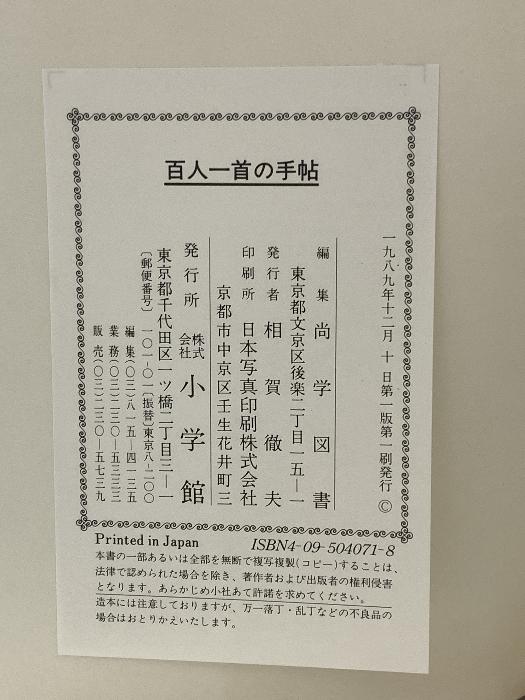 百人一首の手帖
一九八九年十二月 十 日第一版第一刷発行 ©
編 集 尚 学 図 書
東京都文京区後楽二丁目一五―一
発行者 相 賀 徹 夫
印刷所 日本写真印刷株式会社
京都市中京区壬生花井町三
発行所 株式会社 小 学 館
東京都千代田区一ツ橋二丁目三―一
〔郵便番号〕 一〇一-〇一〔振替〕東京八-二〇〇
編 集(〇三)八一五―四一三五
業 務(〇三)二三〇―五三三三
販 売(〇三)二三〇―五七三九
Printed in Japan
ISBN4-09-504071-8
本書の一部あるいは全部を無断で複写複製(コピー)することは、
法律で認められた場合を除き、著作者および出版者の権利侵害
となります。あらかじめ小社あて許諾を求めてください。
造本には注意しておりますが、万一落丁・乱丁などの不良品の
場合はおとりかえいたします。